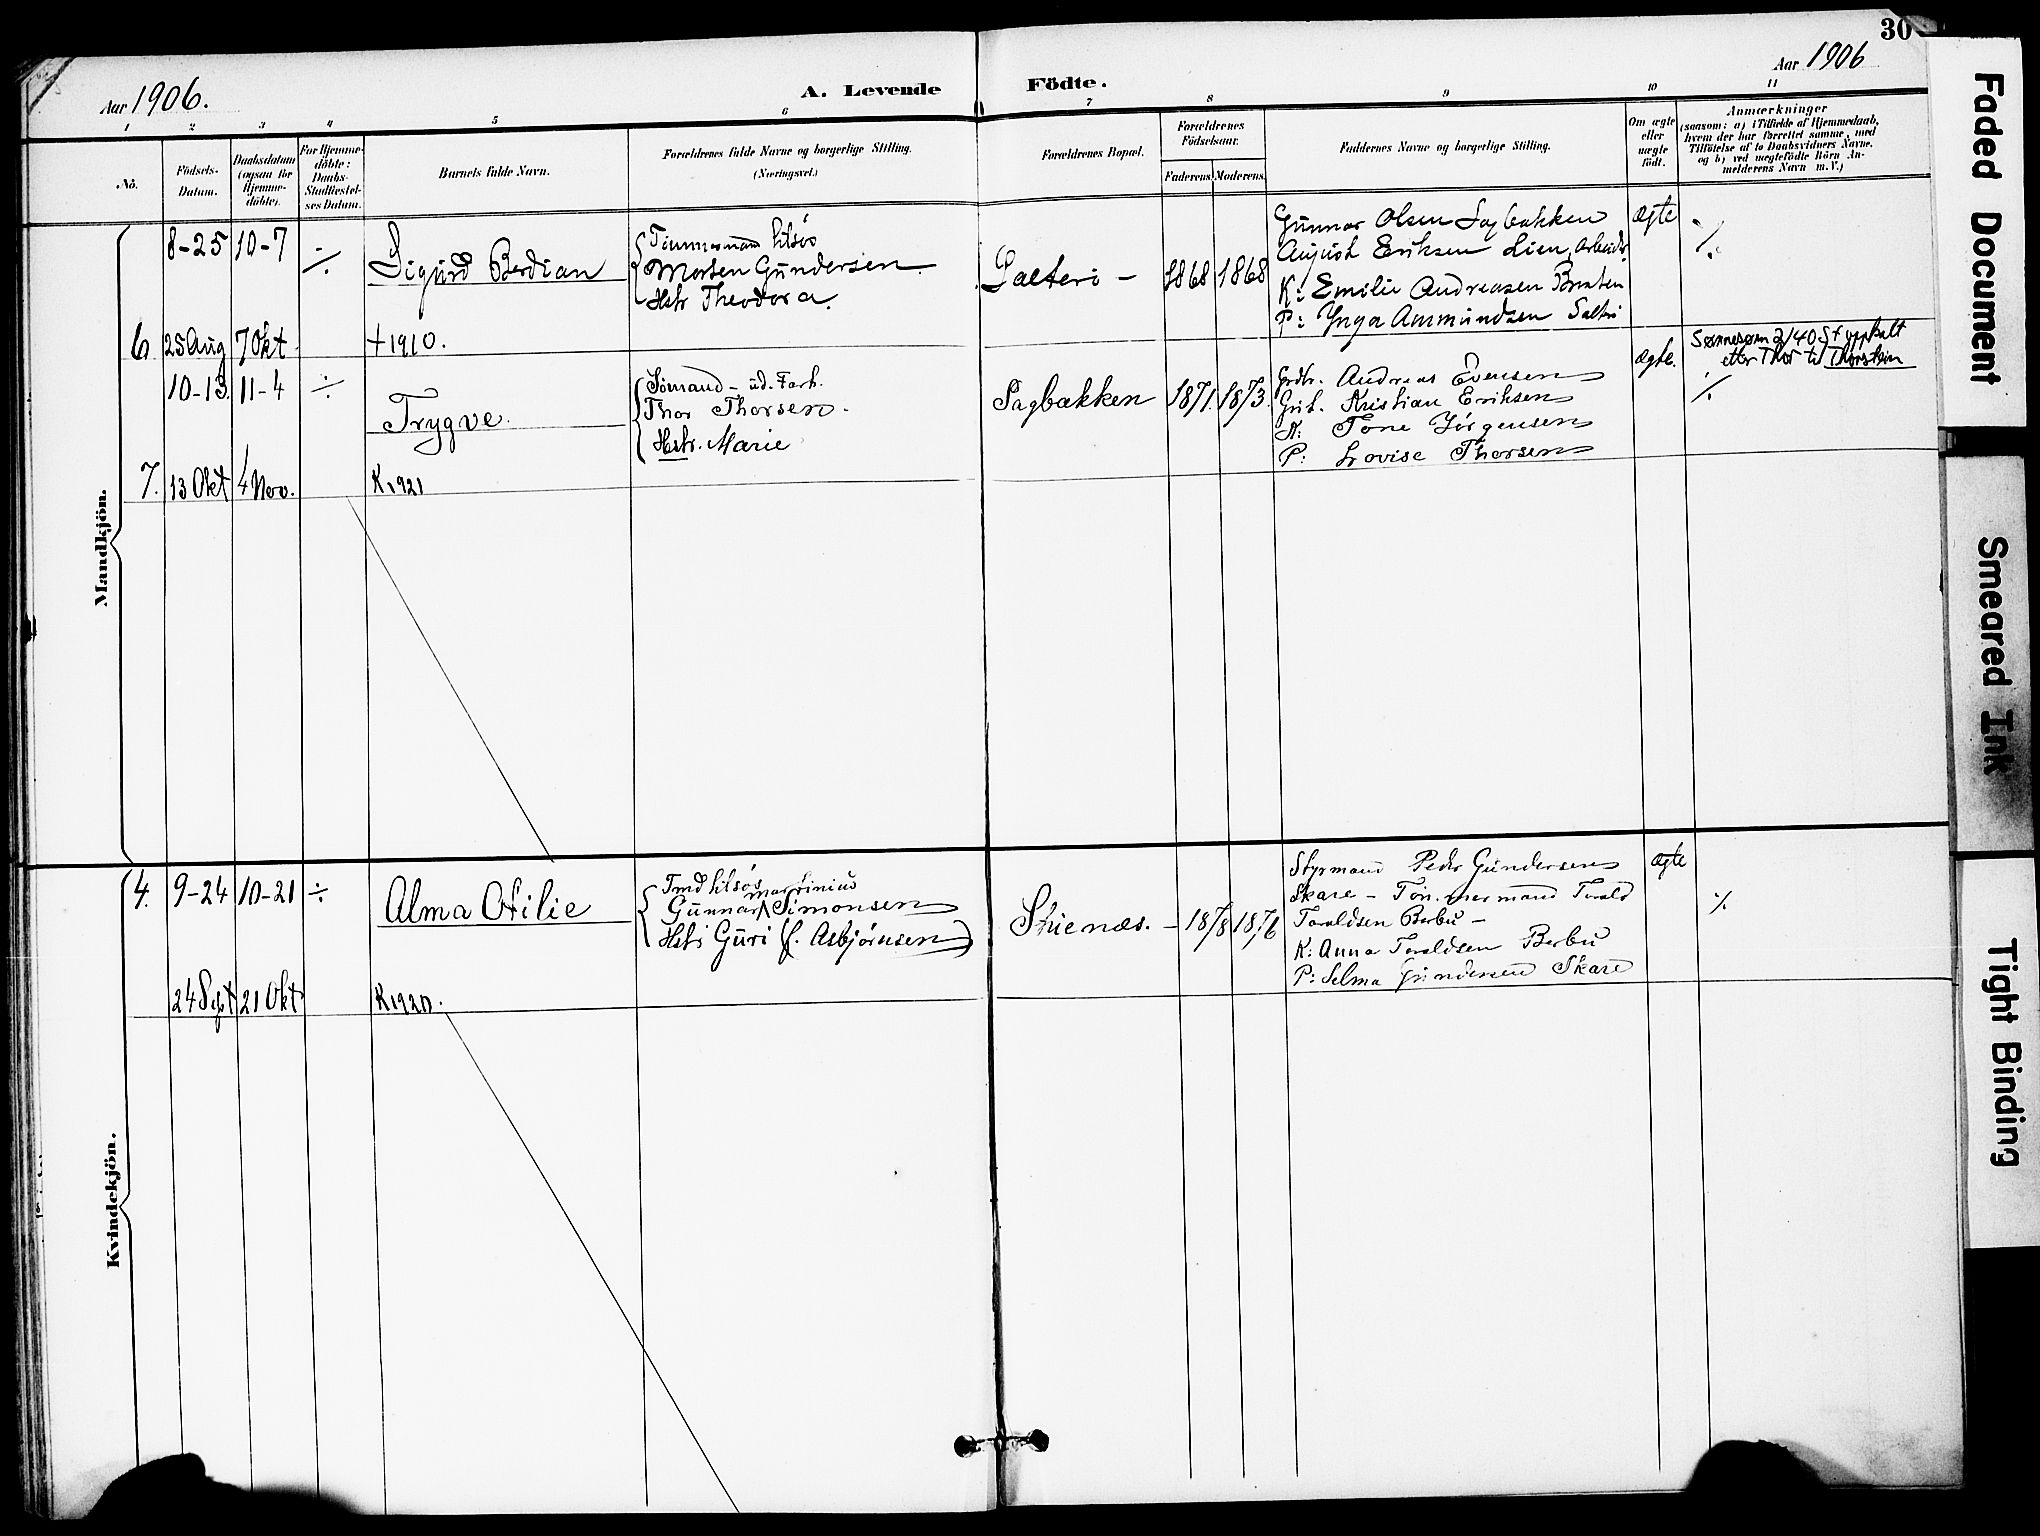 30
Aar 1906.
A. Levende Födte.
Aar 1906
1 2 3 4 5 6 7 8 9 10 11
No.
Födsels-Datum.
Daabsdatum (ogsaa for Hjemme-döbte).
For Hjemme-döbte: Daabs-Stadfæstel-ses Datum.
Barnets fulde Navn.
Forældrenes fulde Navne og borgerlige Stilling. (Næringsvei.)
Forældrenes Bopæl.
Forældrenes Födselsaar.
Faderens. Moderens.
Faddernes Navne og borgerlige Stilling.
Om ægte eller uægte födt.
Anmærkninger
(saasom: a) i Tilfælde af Hjemmedaab,
hvem der har forrettet samme, med
Tilföielse af to Daabsvidners Navne.
og b) ved uægtefödte Börn An-
melderens Navn m.V.)
Mandkjön.
8-25 10-7 ÷
Sigurd Berdian
Tömmermand tilsös
Morten Gundersen
Hstr Theodora
Salteri -
1868 1868
Gunnar Olsen Sagbakken
August Eriksen Lien, Arbeider
K: Emilie Andreasen Braaten
P: Ynga Ammundsen Salteri
ægte
6 25 Aug 7 Okt
+ 1910.
10-13. 11-4 ÷
Trygve.
Sömand - ud. Farh.
Thor Thorsen.
Hstr. Marie
Sagbakken
1871. 1873.
Grdbr. Andreas Evensen
Grdb. Kristian Eriksen
K: Tone Jörgensen
P: Lovise Thorsen
ægte.
etter Thor til Thorstein
7. 13 Okt 4 Nov.
K 1921
Kvindekjön.
4. 9-24 10-21 ÷
Alma Otilie
Tmd tilsös
Gunnar Martinius Simonsen
Hstr Guri (f. Asbjörnsen)
Skienæs. -
1878 1876
Styrmand Peder Gundersen
Skare - Tömmermand Torald
Toraldsen Berbu -
K: Anna Toraldsen Berbu
P: Selma Gundersen Skare
ægte
24 Sept 21 Okt
K 1920.
Faded Document
Smeared Ink
Tight Binding